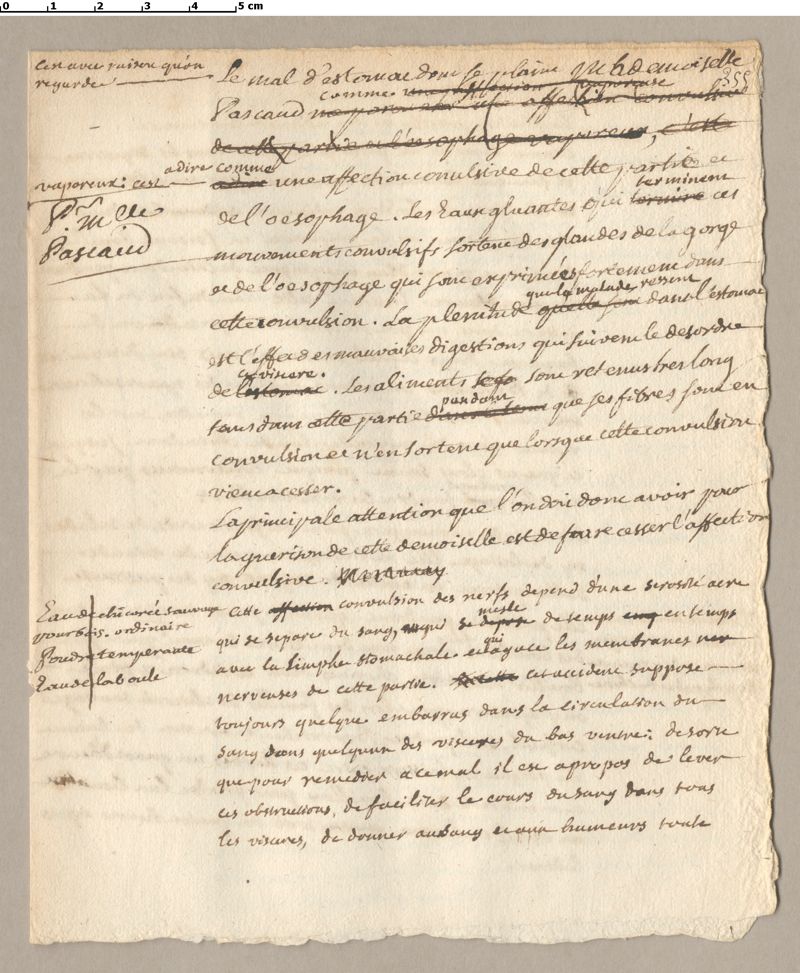 0 1 2 3 4 5 cm
355
C'est avec raison qu'on
regarde
Le mal d'estomac dont se plaint Mlle demoiselle
comme une affection vaporeuse
Pascaud ne paroit etre une affection convulsive
de cette partie et l'oesophage vaporeux, c'est
vaporeux: c'est adire comme
adire une affection convulsive de cette partie et
Pr. Mlle
Pascaud
de l'oesophage. Les Eaux gluantes qui terminent
fournire ces
mouvements convulsifs sortent des glandes de la gorge
et de l'oesophage qui sont exprimées fortement dans
cette convulsion. La plenitude que la malade ressent
quelle sent dans l'estomac
est l'effet des mauvaises digestions qui suivent le desordre
ce viscere.
de l'estomac. Les aliments se so sont retenus tres long
tems dans cette partie pendant
que ses fibres sont en
convulsion et n'en sortent que lorsque cette convulsion
vient a cesser.
La principale attention que l'on doit donc avoir pour
la guerison de cette demoiselle est de faire cesser l'affection
convulsive.
Eau de chicorée sauvage
pour bois. ordinaire
Poudre temperante
Eau de la boule
Cette affection convulsion des nerfs depend d'une serosité acre
qui se separe du sang, qui se mesle
depose de temps en temps
avec la limphe stomachale. et qui agace les membranes ner
nerveuses de cette partie. cet accident suppose
toujours quelque embarras dans la circulation du
sang dans quelqu'un des visceres du bas ventre: desorte
que pour remedier a ce mal il est apropos de lever
ces obstructions, de faciliter le cours du sang dans tous
les visceres, de donner au sang et aux humeurs toute